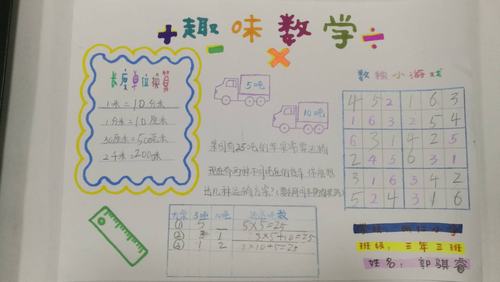 趣味数学
长度单位换算
1米=10分米
1分米=10厘米
50厘米=500毫米
2千米=2000米
5吨
10吨
某司有25吨的苹果需要运输
现在有两种不同吨位的货车,你能想
出几种运的方案?
方案 5吨 10吨 运送吨数
① 5 — 5×5=25
② 3 1 3×5+10=25
③ 1 2 5×10+5=25
数独小游戏
4 5 2 1 6 3
1 6 3 2 5 4
6 3 1 4 2 5
2 4 5 6 3 1
3 1 6 5 4 2
5 2 4 3 1 6
班级:三年三班
姓名:郭骐睿